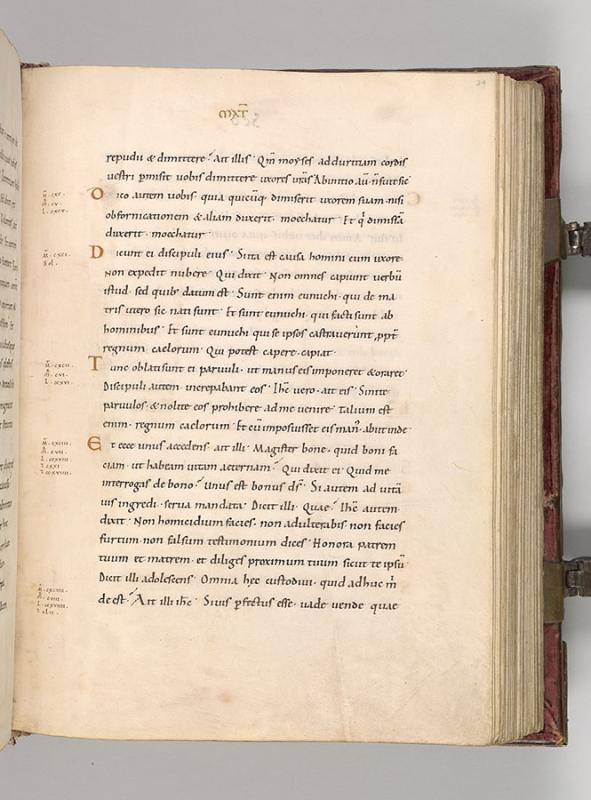 MXT̄
24
repudii & dimittere? Ait illis· Qm̄ moyses ad duritiam cordis
vestri p̄misit vobis dimittere uxores vr̄as Ab initio au̅ n̄ fuit sic
Dico autem vobis quia quicūq; dimiserit uxorem suam nisi
ob fornicationem & aliam duxerit· moechatur· Et q̇ dimissā
duxerit· moechatur
Dicunt ei discipuli eius· Si ita est causa homini cum uxore·
Non expedit nubere· Qui dixit· Non omnes capiunt verbū
istud· sed quib; datum est· Sunt enim eunuchi· qui de ma
tris utero sic nati sunt· Et sunt eunuchi· qui facti sunt ab
hominibus· Et sunt eunuchi qui se ipsos castraverunt ,ppt̄
regnum caelorum· Qui potest capere· capiat·
Tunc oblati sunt ei parvuli· ut manus eis imponeret & oraret·
Discipuli autem· increpabant eos· Ihc̄ vero· ait eis· Sinite
parvulos· & nolite eos prohibere ad me venire· Talium est
enim· regnum caelorum· Et cū imposuisset eis man;· abiit inde
Et ecce unus accedens· ait illi· Magister bone· quid boni fa
ciam· ut habeam vitam aeternam? Qui dixit ei· Quid me
interrogas de bono? Unus est bonus ds̄· Si autem ad vitā
vis ingredi· serva mandata· Dicit illi· Quae? Ihc̄ autem·
dixit· Non homicidium facies· non adulterabis· non facies
furtum· non falsum testimonium dices· Honora patrem
tuum et matrem· et diliges proximum tuum sicut te ipsū
Dicit illi adolescens· Omnia hęc custodivi· quid adhuc m̄
deest? Ait illi ihc̄· Si vis p̄fectus esse· vade vende quae